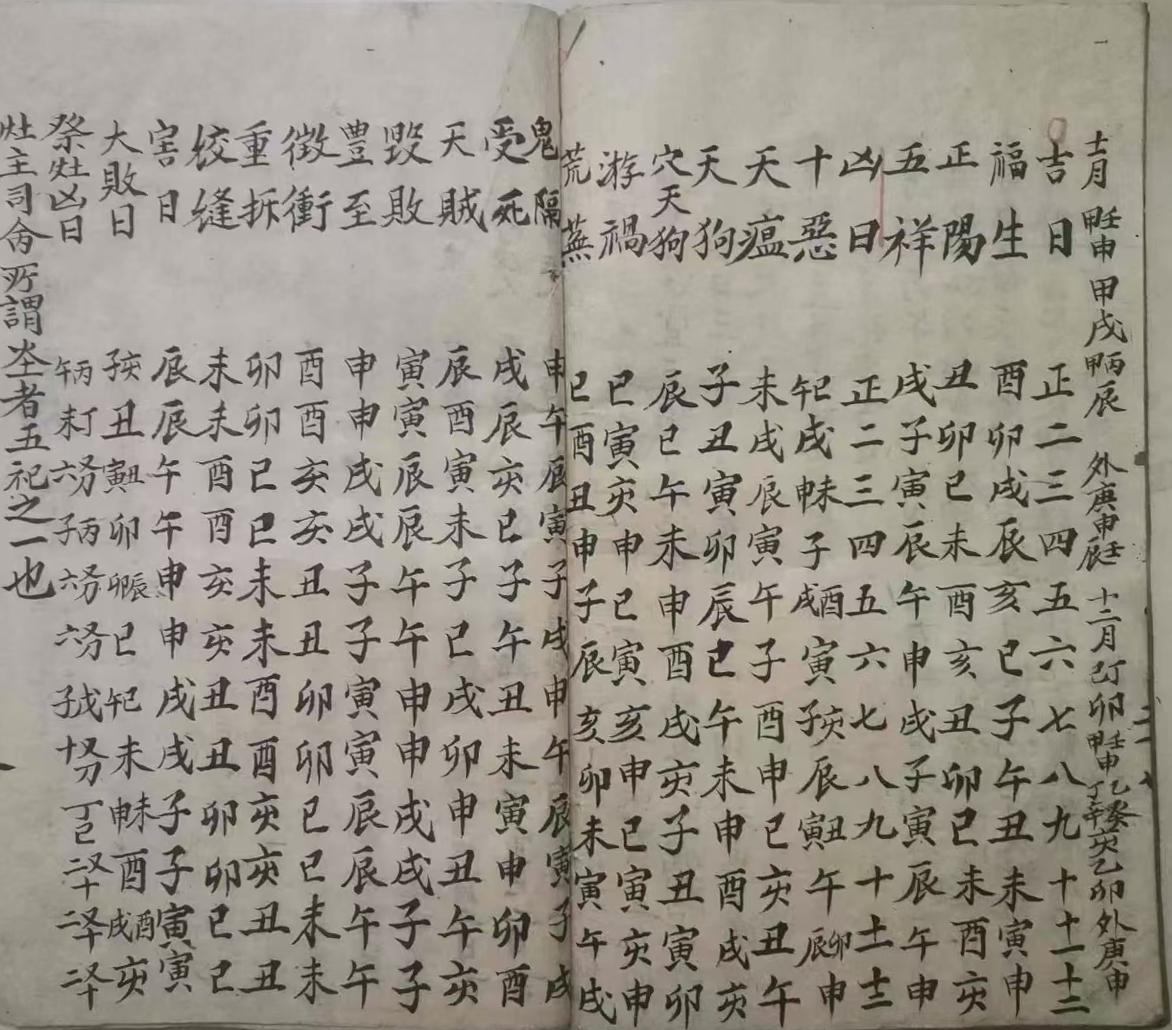 十一月 壬甲申 甲戌 丙甲辰 外庚申壬辰 十二月丁己卯壬甲申乙丁癸辛亥乙卯外庚申
吉日 正二三四五六七八九十十一十二
福生 酉卯戌辰亥巳子午丑未寅申
正陽 丑卯巳未酉亥丑卯巳未酉亥
五祥 戌子寅辰午申戌子寅辰午申
凶日 正二三四五六七八九十十一十二
十惡 巳午戌未申子酉戌寅亥子辰丑寅午卯辰申
天瘟 未戌辰寅午子酉申巳亥丑午
天狗 子丑寅卯辰巳午未申酉戌亥
穴天狗 辰巳午未申酉戌亥子丑寅卯
游禍 巳寅亥申巳寅亥申巳寅亥申
荒蕪 巳酉丑申子辰亥卯未寅午戌
鬼隔 申午辰寅子戌申午辰寅子戌
受死 戌辰亥巳子午丑未寅申卯酉
天賊 辰酉寅未子巳戌卯申丑午亥
毀敗 寅寅辰辰午午申申戌戌子子
豊至 申申戌戌子子寅寅辰辰午午
徴衝 酉酉亥亥丑丑卯卯巳巳未未
重拆 卯卯巳巳未未酉酉亥亥丑丑
绞缝 未未酉酉亥亥丑丑卯卯巳巳
害日 辰辰午午申申戌戌子子寅寅
大敗日 亥子丑丑寅卯辰卯巳巳午未未申酉酉戌亥
祭灶凶日 丙午丁未六丙子六六戊子十丁巳二十
灶主司命所謂灶者五祀之一也